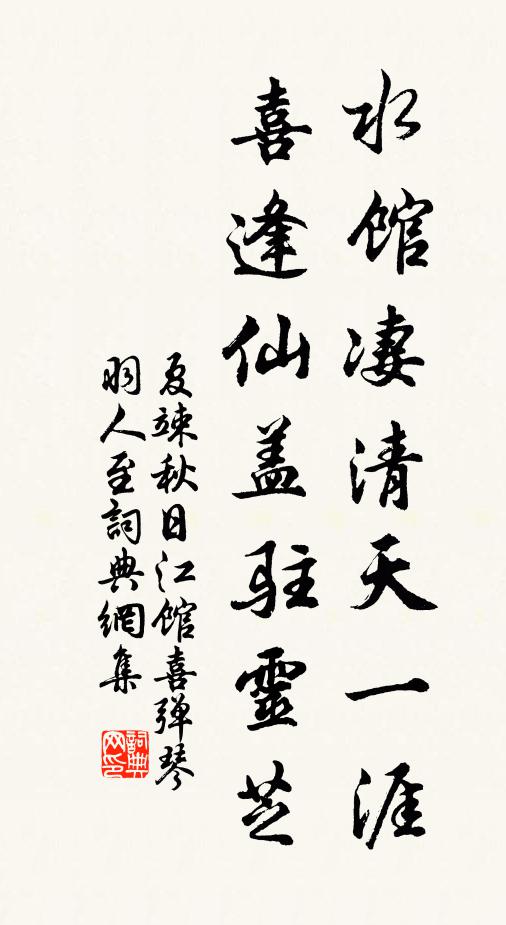 水馆凄清天一涯
喜逢仙盖驻靈芝
夏竦秋日江馆喜弹琴
羽人至詞典網集
詞典
网印